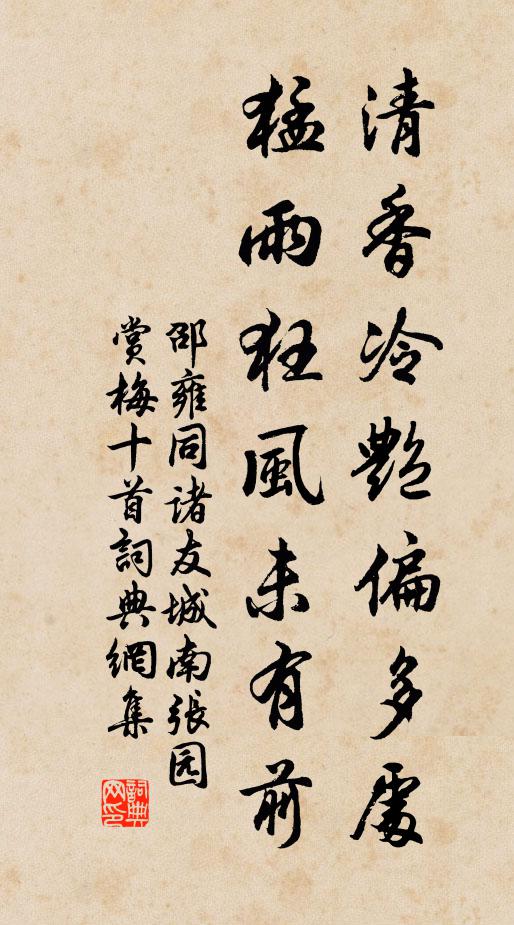 清香冷艷偏多處
猛雨狂風未有前
邵雍同诸友城南張园
賞梅十首詞典網集
詞典網印